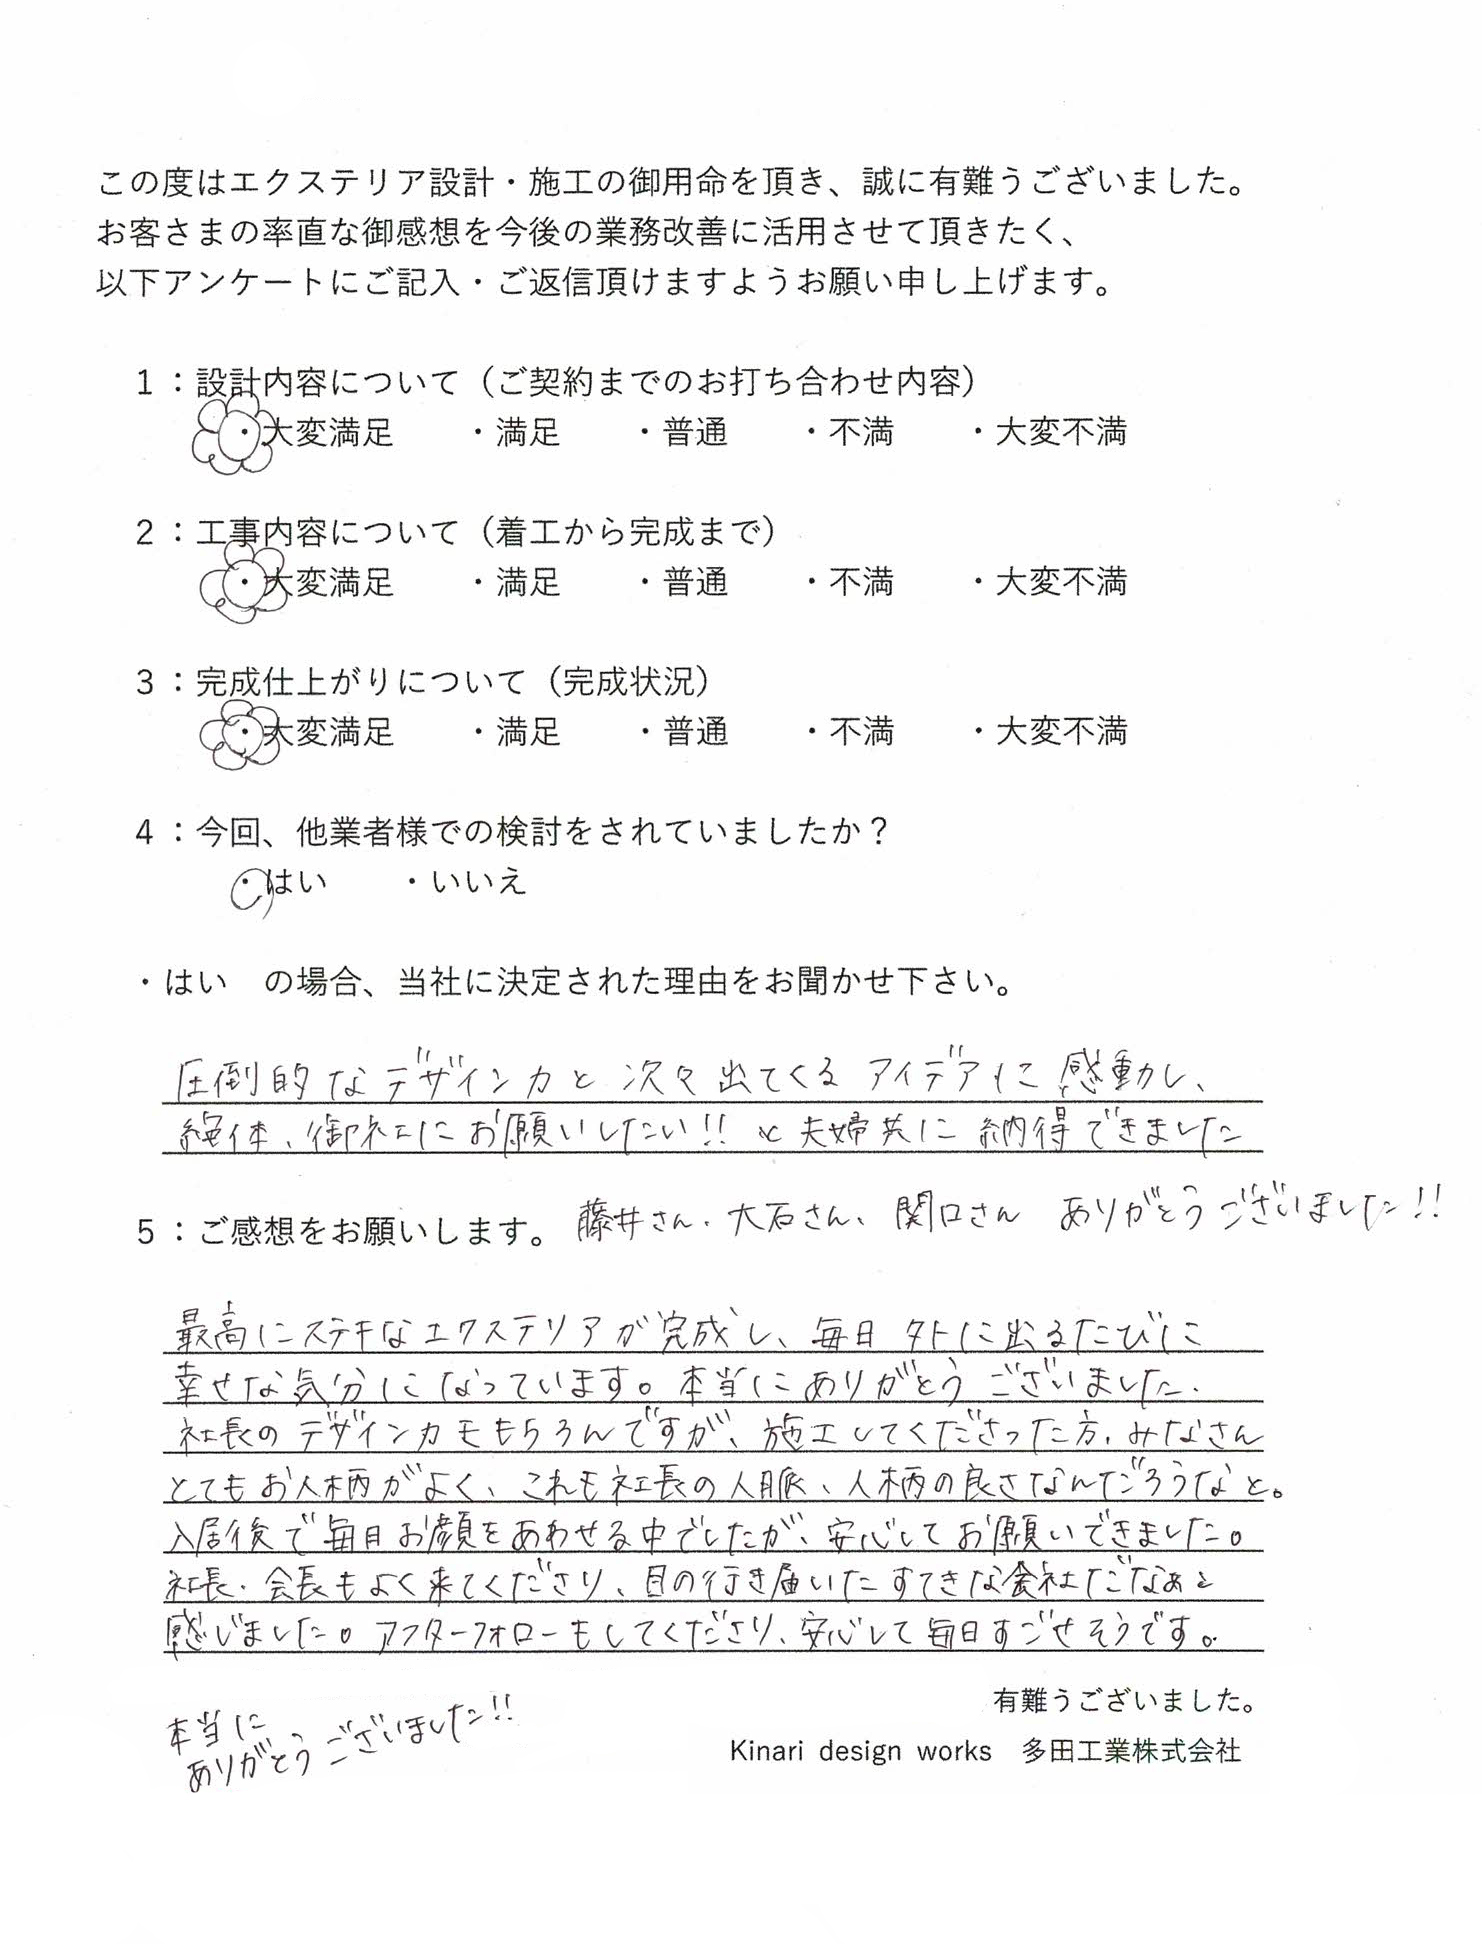 この度はエクステリア設計・施工の御用命を頂き、誠に有難うございました。
お客さまの率直な御感想を今後の業務改善に活用させて頂きたく、
以下アンケートにご記入・ご返信頂けますようお願い申し上げます。
1：設計内容について（ご契約までのお打ち合わせ内容）
・大変満足 ・満足 ・普通 ・不満 ・大変不満
2：工事内容について（着工から完成まで）
・大変満足 ・満足 ・普通 ・不満 ・大変不満
3：完成仕上がりについて（完成状況）
・大変満足 ・満足 ・普通 ・不満 ・大変不満
4：今回、他業者様での検討をされていましたか？
・はい ・いいえ
・はい の場合、当社に決定された理由をお聞かせ下さい。
圧倒的なデザイン力と次々出てくるアイデアに感動し、
絶体、御社にお願いしたい!! と夫婦共に納得できました
5：ご感想をお願いします。 藤井さん、大石さん、関口さん ありがとうございました!!
最高にステキなエクステリアが完成し、毎日外に出るたびに
幸せな気分になっています。本当にありがとうございました。
社長のデザイン力ももちろんですが、施工してくださった方、みなさん
とてもお人柄がよく、これも社長の人脈、人柄の良さなんだろうなと。
入居後で毎日お顔をあわせる中でしたが、安心してお願いできました。
社長・会長もよく来てくださり、目の行き届いたすてきな会社だなぁと
感じました。アフターフォローもしてくださり、安心して毎日すごせそうです。
有難うございました。
本当に
ありがとうございました!!
Kinari design works 多田工業株式会社